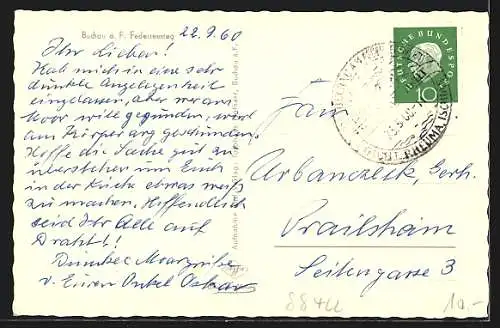 Buchau a. F. Federseesteg
22.9.60
Ihr Lieben!
Hab mich in eine sehr
dunkle Angelegenheit
eingelassen, aber wer aus
Moor will gesunden, wird
am Körper arg geschunden.
Hoffe die Sache gut zu
überstehen um Euch
in der Küche etwas weiß
zu machen. Hoffendlich
seid Ihr Alle auf
Draht!
Dunkle Moorgrüße
v. Euren Onkel Oskar
DEUTSCHE BUNDESPOST
10
Fam
Urbanczeck, Gerh.
Crailsheim
Seitengasse 3
10.-